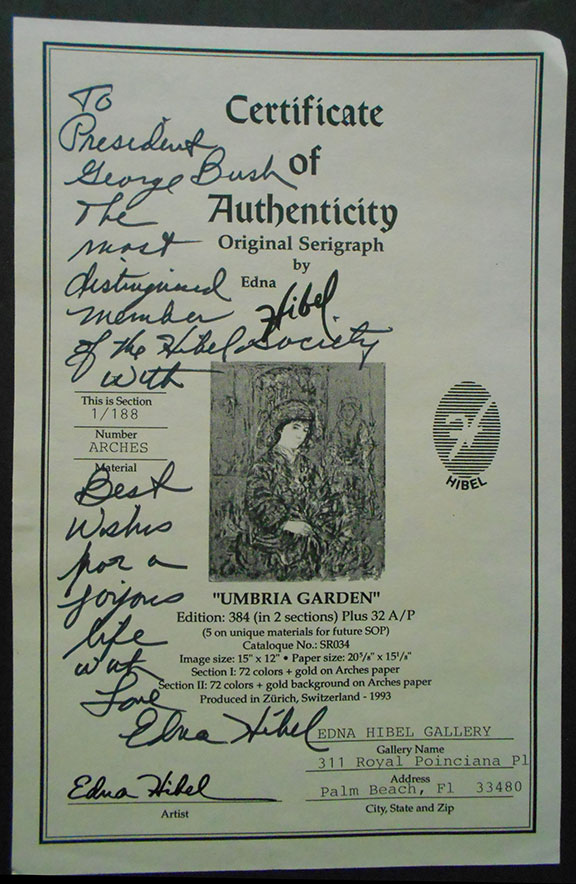 To
President
George Bush
The
most
distinguised
member
of the Hibel Society
with
Best
Wishes
for a
joyous
life
with
Love
Edna Hibel
Certificate
of
Authenticity
Original Serigraph
by
Edna
Hibel
This is Section
1/188
Number
ARCHES
Material
HIBEL
"UMBRIA GARDEN"
Edition: 384 (in 2 sections) Plus 32 A/P
(5 on unique materials for future SOP)
Catalogue No.: SR034
Image size: 15" x 12" • Paper size: 20⁵/₈" x 15¹/₈"
Section I: 72 colors + gold on Arches paper
Section II: 72 colors + gold background on Arches paper
Produced in Zürich, Switzerland - 1993
EDNA HIBEL GALLERY
Gallery Name
311 Royal Poinciana Pl
Address
Palm Beach, Fl 33480
City, State and Zip
Edna Hibel
Artist